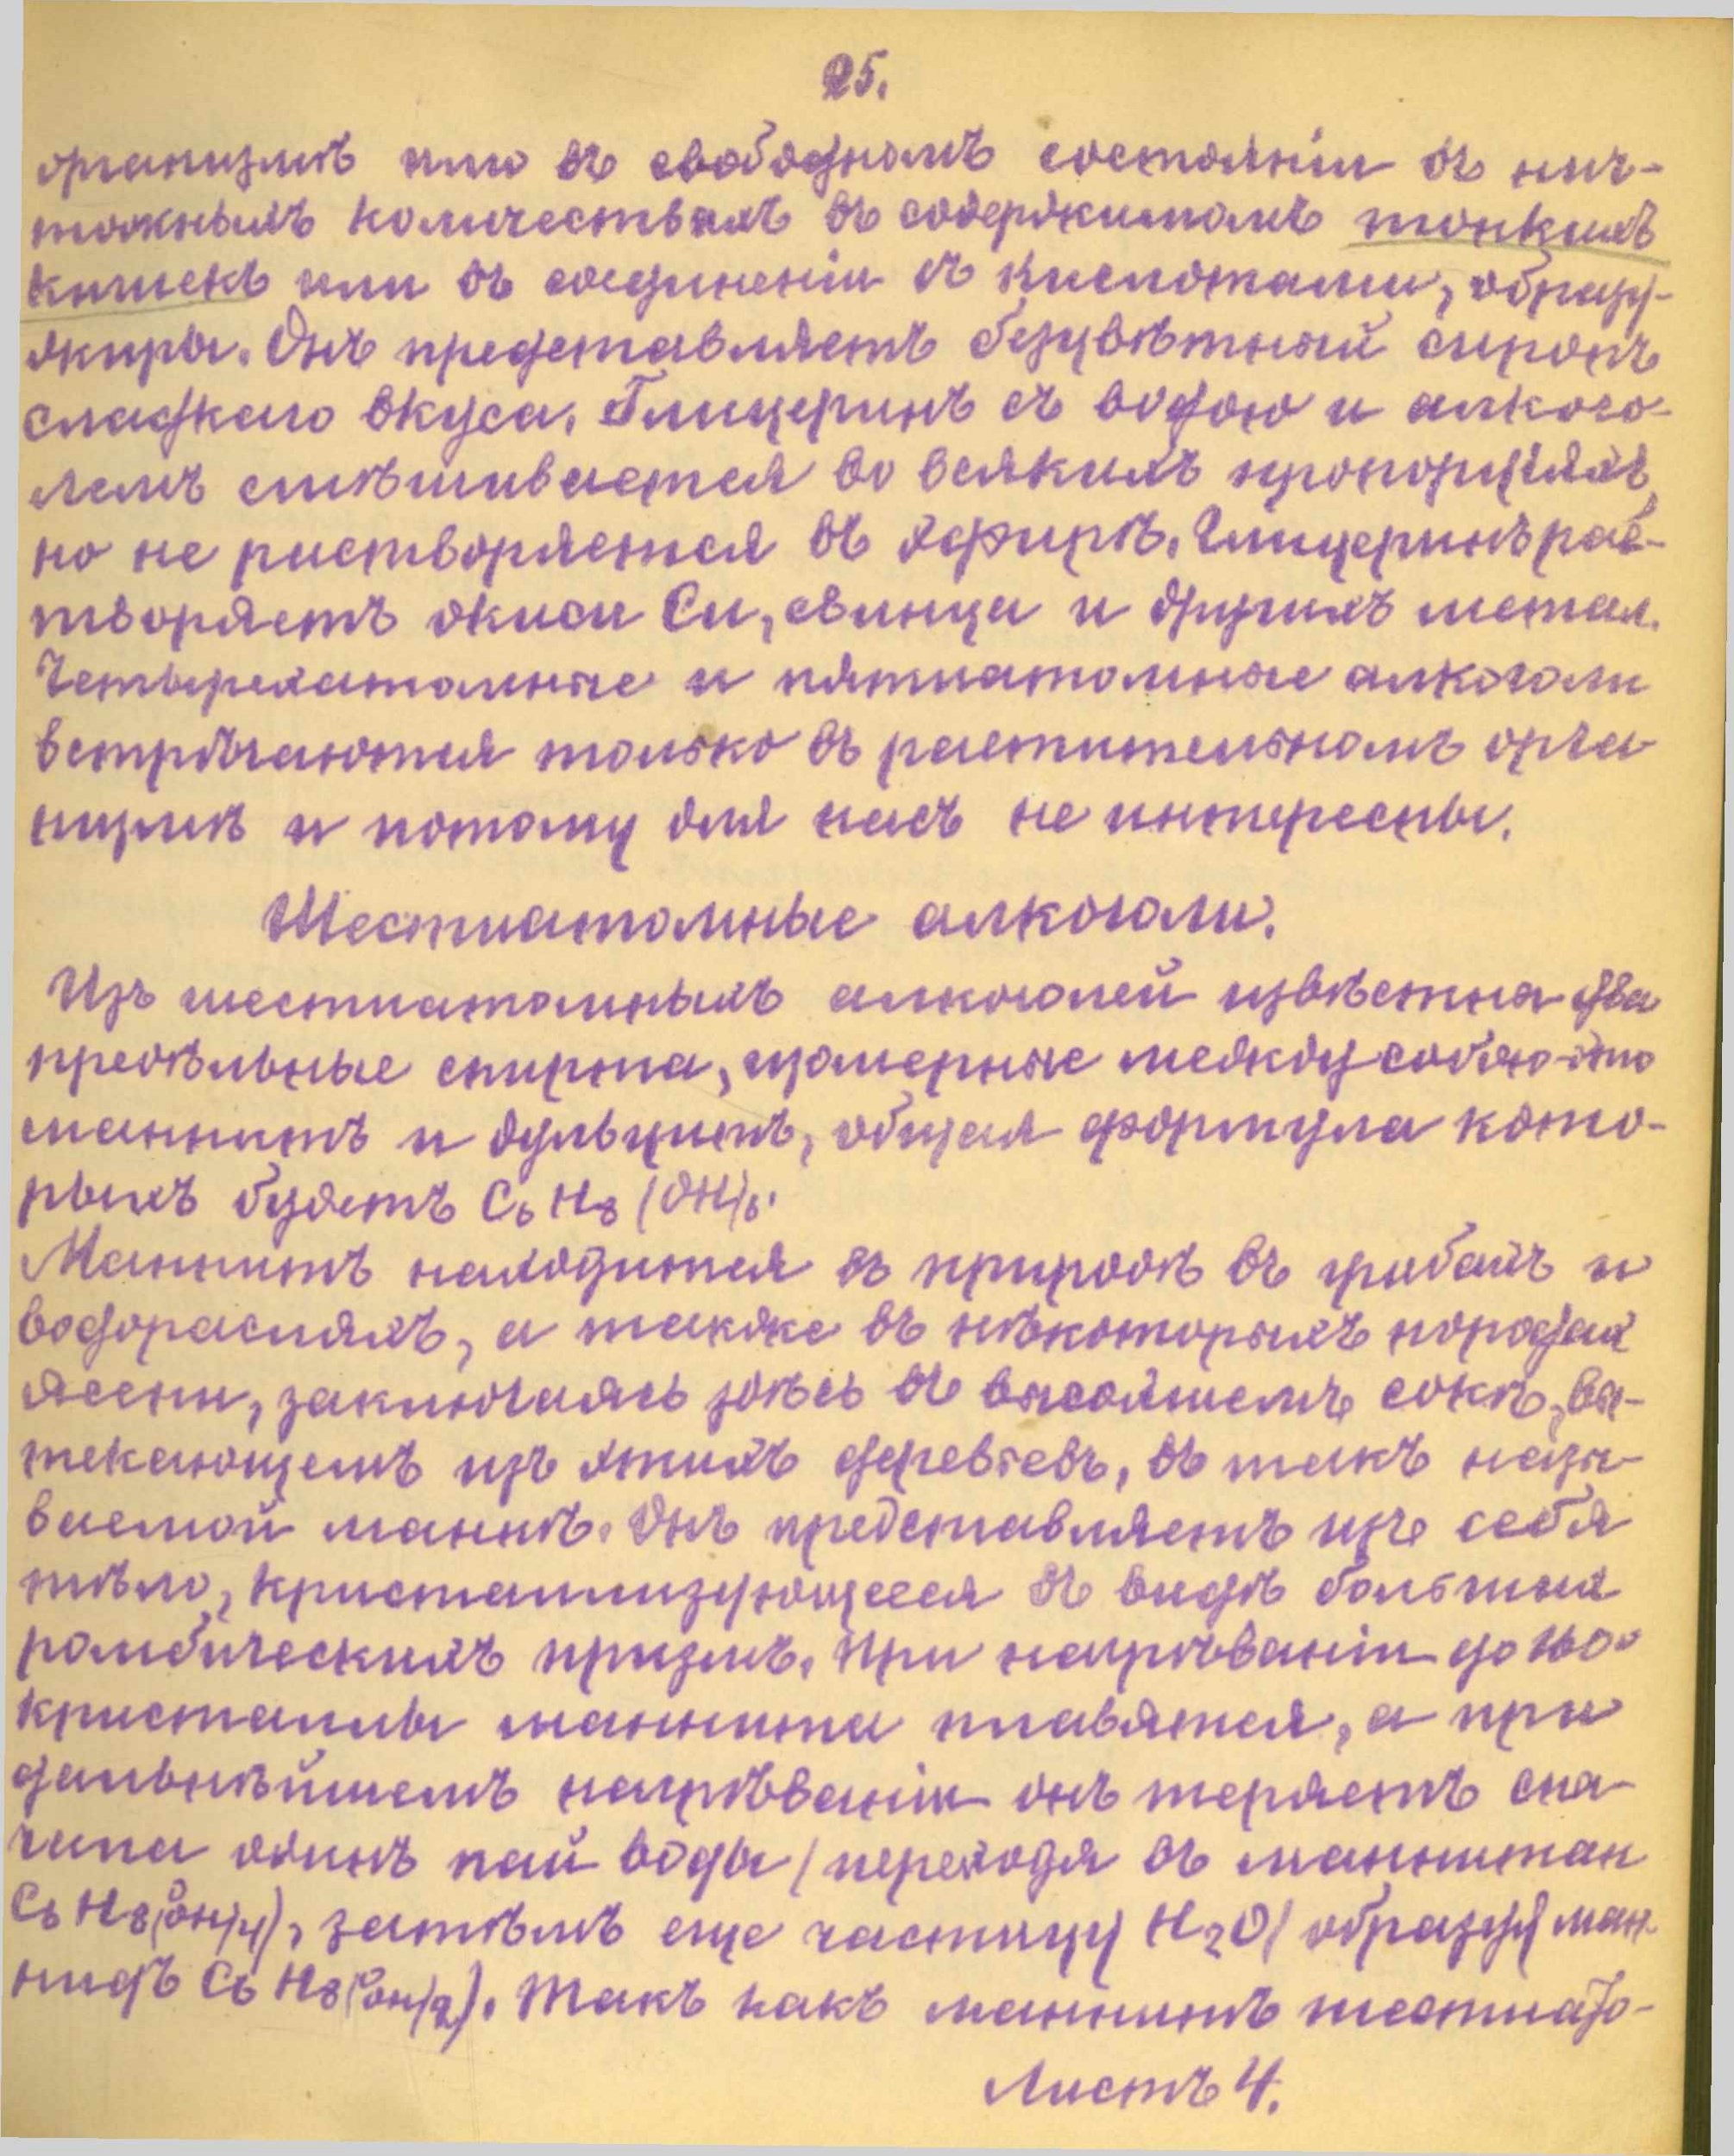 25.
организмѣ или въ свободномъ состояніи въ нич-
тожныхъ количествахъ въ содержимомъ тонкихъ
кишекъ или въ соединеніи съ кислотами, образу-
я жиры. Онъ представляетъ безцвѣтный сиропъ
сладкаго вкуса. Глицеринъ съ водою и алкого-
лемъ смѣшивается во всякихъ пропорціяхъ,
но не растворяется въ эфирѣ. Глицеринъ рас-
творяетъ окиси Cu, свинца и другихъ метал.
Четырехатомные и пятиатомные алкоголи
встрѣчаются только въ растительномъ орга
низмѣ и потому для насъ не интересны.
Шестиатомные алкоголи.
Изъ шестиатомныхъ алкоголей извѣстна два
предѣльные спирта, изомерные между собою-это
маннитъ и дульцитъ, общая формула кото-
рыхъ будетъ C6 H8 (OH)6.
Маннитъ находится въ природѣ въ грибахъ и
водоросляхъ, а также въ нѣкоторыхъ породах
ясени, заключаясь здѣсь въ высохшемъ сокѣ, вы-
текающемъ изъ этихъ деревьевъ, въ такъ назы-
ваемой маннѣ. Онъ представляетъ изъ себя
тѣло, кристаллизующееся въ видѣ большихъ
ромбическихъ призмъ. При нагрѣваніи до 160°
кристаллы маннита плавятся, а при
дальнѣйшемъ нагрѣваніи онъ теряетъ сна-
чала одинъ пай воды (переходя въ маннитан
C6 H8(OH)4), затѣмъ еще частицу H2O (образуя ман-
нидъ C6 H8(OH)2). Такъ какъ маннитъ шестиато-
Листъ 4.